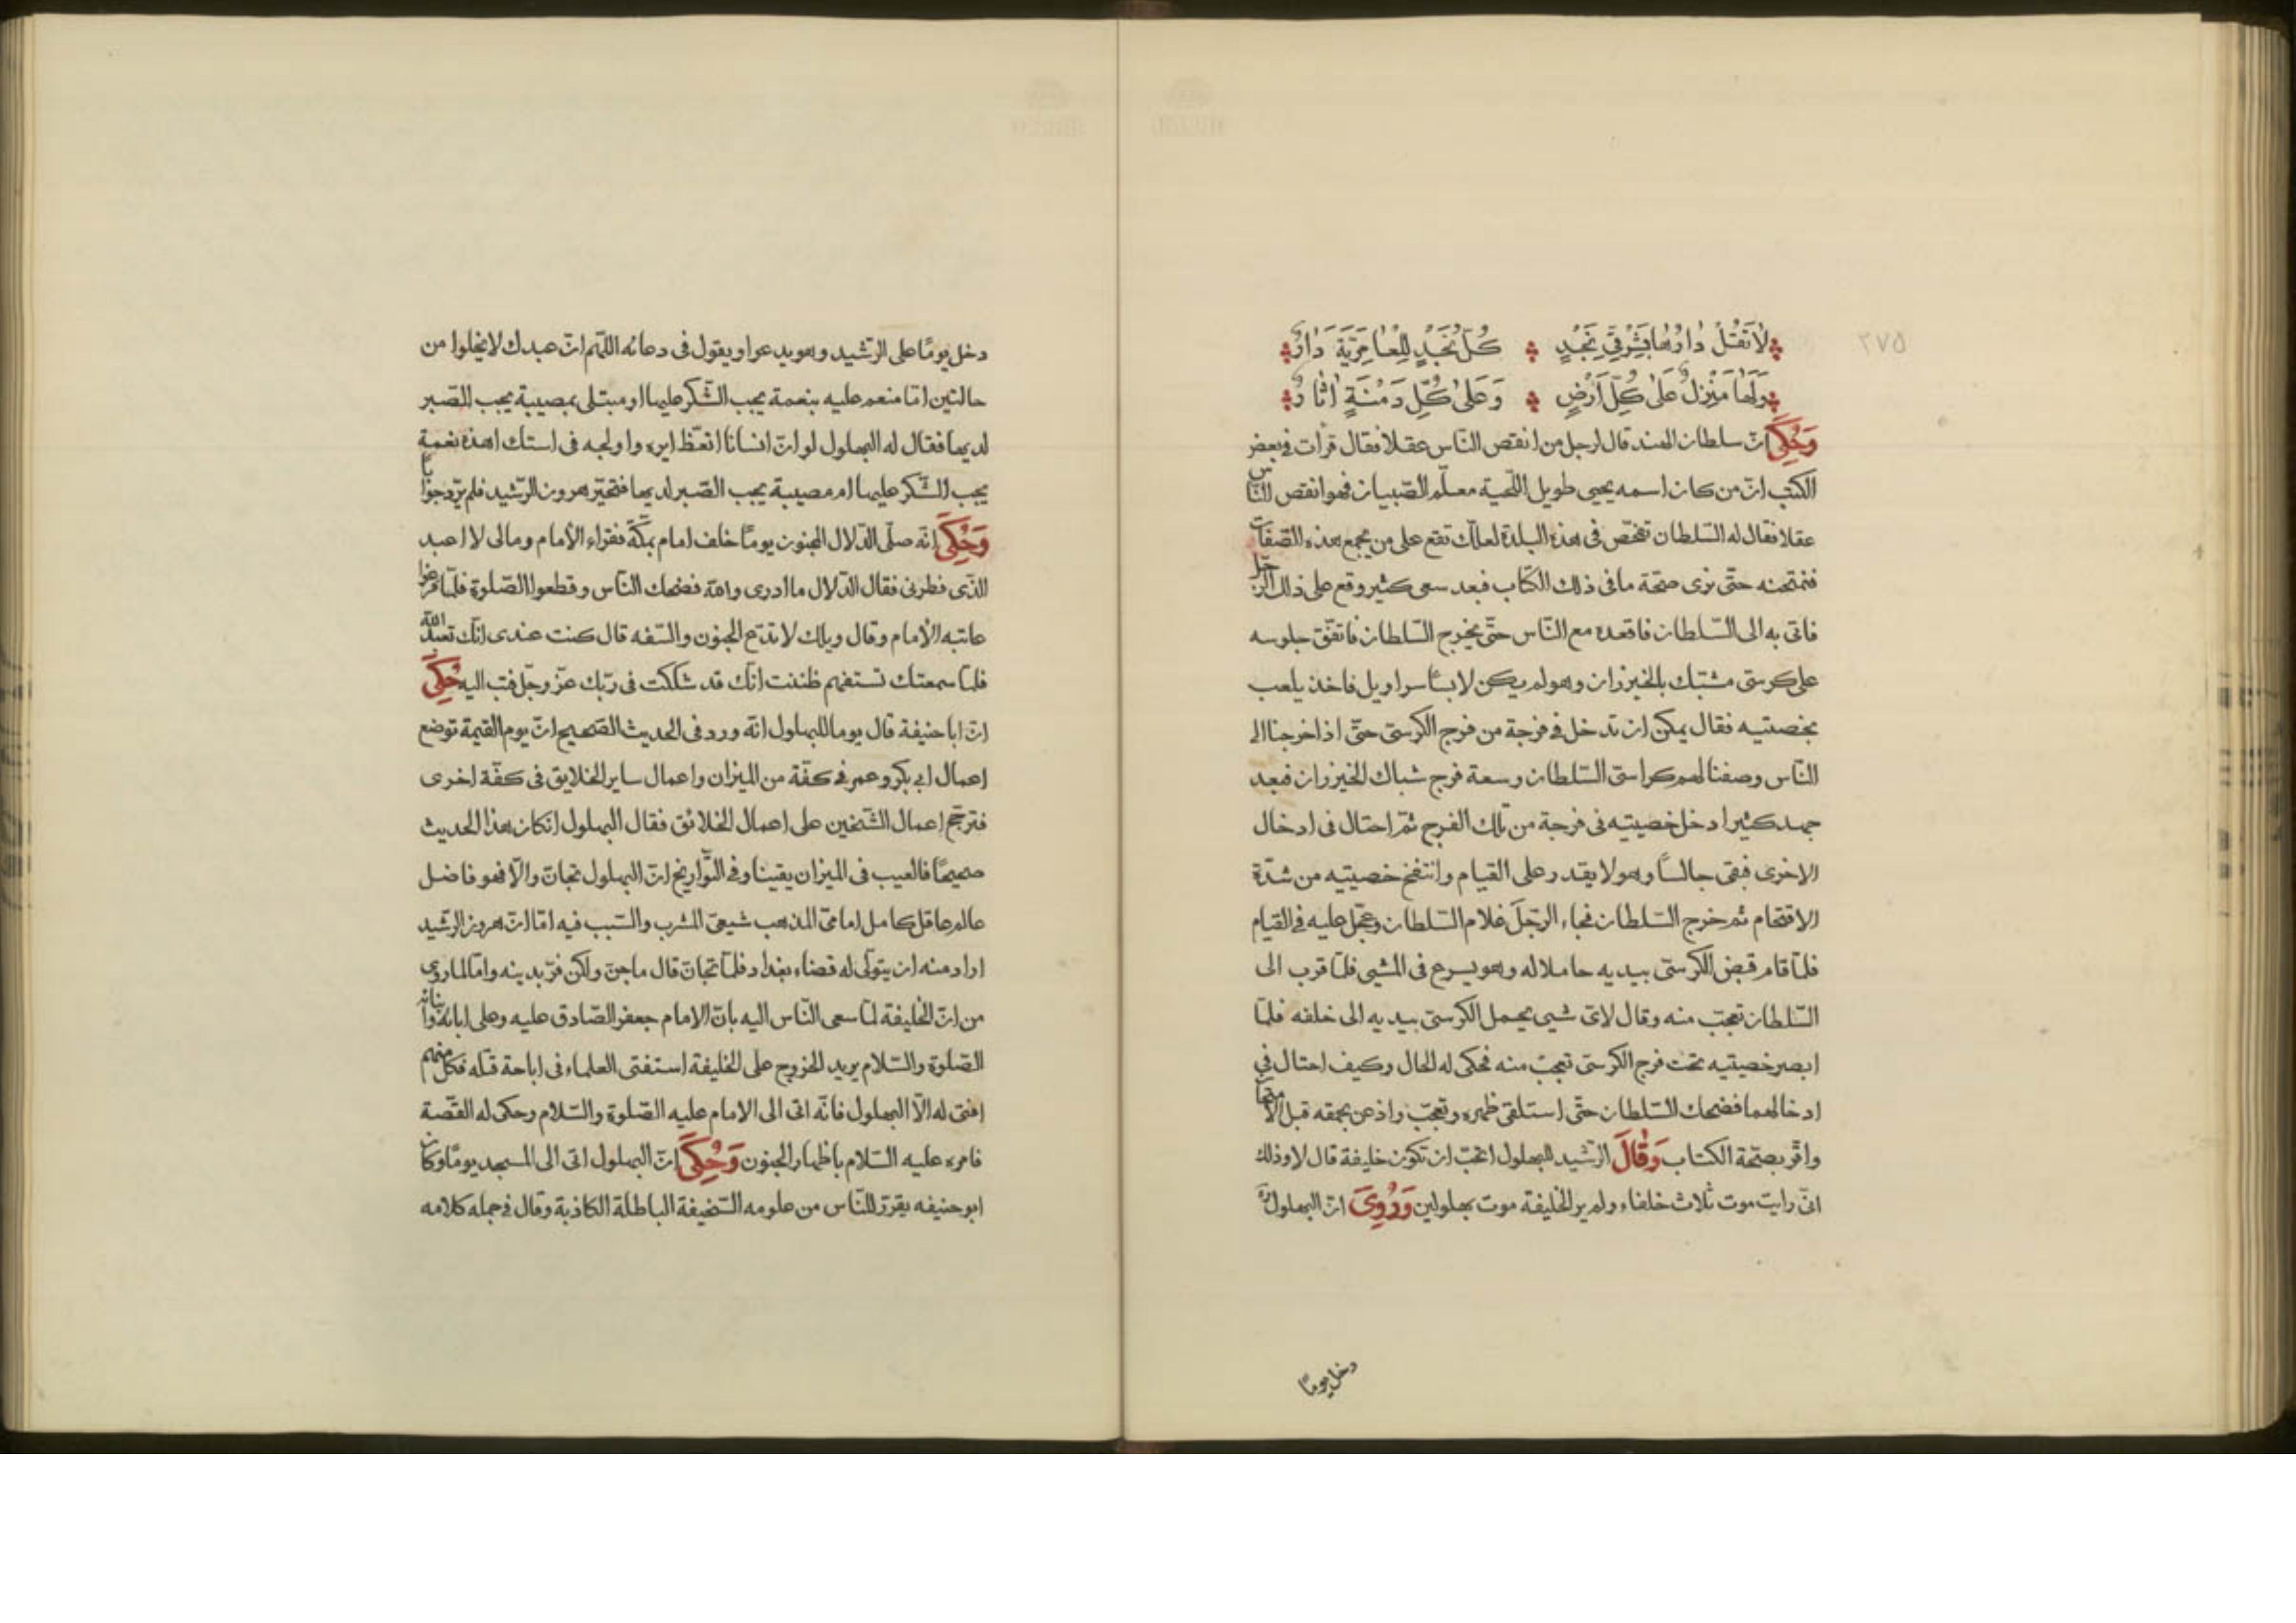 لَا تَقُلْ دَارُهَا بِشَرْقِيِّ نَجْدٍ كُلُّ نَجْدٍ لِلْعَامِرِيَّةِ دَارُ
وَلَهَا مَنْزِلٌ عَلَى كُلِّ أَرْضٍ وَعَلَى كُلِّ دِمْنَةٍ آثَارُ
وَحُكِيَ انّ سلطان الهند قال لرجل من انقص النّاس عقلا فقال قرأت فى بعض
الكتب انّ من كان اسمه يحيى طويل اللّحية معلّم الصّبيان فهو انقص النّاس
عقلا فقال له السّلطان تفحّص فى هذه البلدة لعلّك تقع على من يجمع هذه الصّفات
فنمتحنه حتّى نرى صحّة ما فى ذلك الكتاب فبعد سعى كثير وقع على ذلك الرّجل
فاتى به الى السّلطان فاقعده مع النّاس حتّى يخرج السّلطان فاتفق جلوسه
على كرسىّ مشبّك بالخيزران وهو لم يكن لابسًا سراويل فاخذ يلعب
بخصيتيه فقال يمكن ان تدخل فى فرجة من فرج الكرسىّ حتّى اذا خرجنا الى
النّاس وصفنا لهم كراسىّ السّلطان وسعة فرج شباك الخيزران فبعد
جهد كثير ادخل خصيتيه فى فرجة من تلك الفرج ثمّ احتال فى ادخال
الاخرى فبقى جالسًا وهو لا يقدر على القيام وانتفخ خصيتيه من شدّة
الاقتحام ثم خرج السّلطان فجاء الرّجل غلام السّلطان وعجّل عليه فى القيام
فلمّا قام قبض الكرسىّ بيديه حاملا له وهو يسرع فى المشى فلمّا قرب الى
السّلطان تعجّب منه وقال لاىّ شيى يحمل الكرسىّ بيديه الى خلفه فلمّا
ابصر خصيتيه تحت فرج الكرسىّ تعجّب منه فحكى له الحال وكيف احتال فى
ادخالهما فضحك السّلطان حتّى استلقى ظهره وتعجّب واذعن بحمقه قبل
واقرّ بصحّة الكتاب وَقَالَ الرّشيد للبهلول اتحبّ ان تكون خليفة قال لا وذلك
انّى رايت موت ثلاث خلفاء ولم ير الخليفة موت بهلولين وَرُوِىَ انّ البهلول
دخل يومًا
دخل يومًا على الرّشيد وهو يدعوا ويقول فى دعائه اللّهم انّ عبدك لا يخلوا من
حالتين امّا منعم عليه بنعمة يجب الشّكر عليها او مبتلى بمصيبة يجب الصّبر
لديها فقال له البهلول لو انّ انسانا انعّظ ايره واولجه فى استك اهذه نعمة
يجب الشّكر عليها ام مصيبة يجب الصّبر لديها فتحيّر هرون الرّشيد فلم يردّ جوابًا
وَحُكِىَ انّه صلّى الدّلال المجنون يومًا خلف امام بمكّة فقراء الأمام ومالى لا اعبد
الذّى فطرنى فقال الدّلال ما ادرى والله فضحك النّاس وقطعوا الصّلوة فلمّا فرغوا
عاتبه الأمام وقال ويلك لا تدع الجنون والسّفه قال كنت عندى انّك تعبد الله
فلمّا سمعتك تستفهم ظننت انّك قد شككت فى ربّك عزّ وجلّ فتب اليه حُكِىَ
انّ ابا حنيفة قال يوما للبهلول انّه ورد فى الحديث الصّحيح انّ يوم القيمة توضع
اعمال ابى بكر وعمر فى كفّة من الميزان واعمال ساير الخلايق فى كفّة اخرى
فترجّح اعمال الشّيخين على اعمال الخلائق فقال البهلول انكان هذا الحديث
صحيحًا فالعيب فى الميزان يقينا وفى التّواريخ انّ البهلول تجانّ والّا فهو فاضل
عالم عاقل كامل امامىّ المذهب شيعىّ المشرب والسّبب فيه امّا انّ هرون الرّشيد
اراد منه ان يتولّى له قضاء بغداد فلمّا تجانّ قال ما جنّ ولكن فرّ بدينه وامّا لما روى
من انّ الخليفة لمّا سعى النّاس اليه بانّ الامام جعفر الصّادق عليه وعلى ابائه وابنائه
الصّلوة والسّلام يريد الخروج على الخليفة استفتى العلماء فى اباحة قتله فكلّ منهم
افتى له الّا البهلول فانّه اتى الى الامام عليه الصّلوة والسّلام وحكى له القصّة
فامره عليه السّلام باظهار الجنون وَحُكِىَ انّ البهلول اتى الى المسجد يومًا وكان
ابو حنيفه يقرّر للنّاس من علومه السّخيفة الباطلة الكاذبة وقال فى جمله كلامه